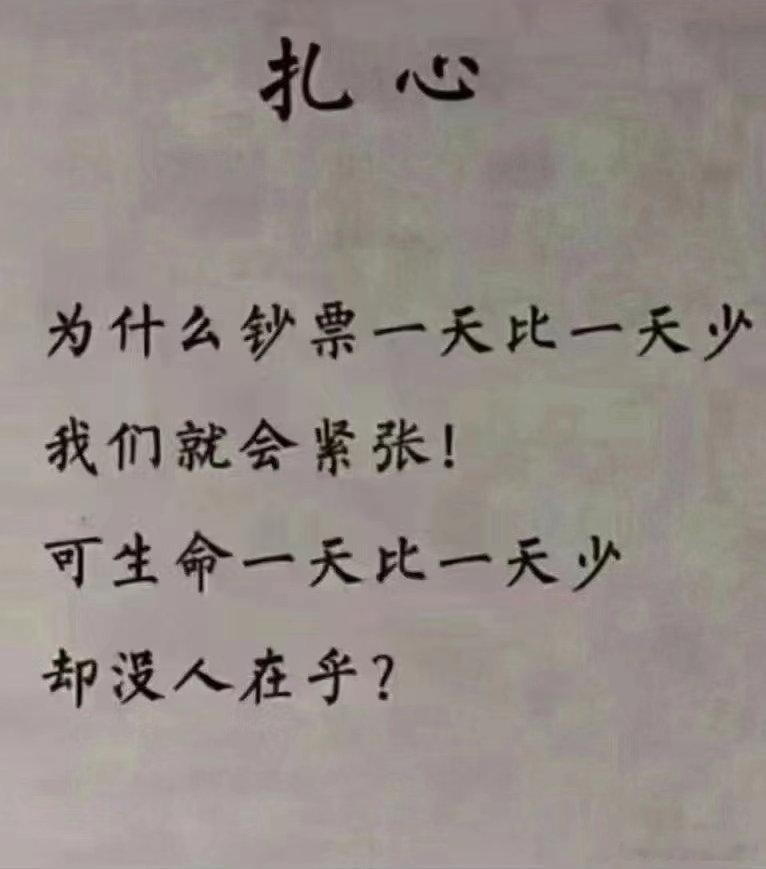 扎心
为什么钞票一天比一天少
我们就会紧张！
可生命一天比一天少
却没人在乎？